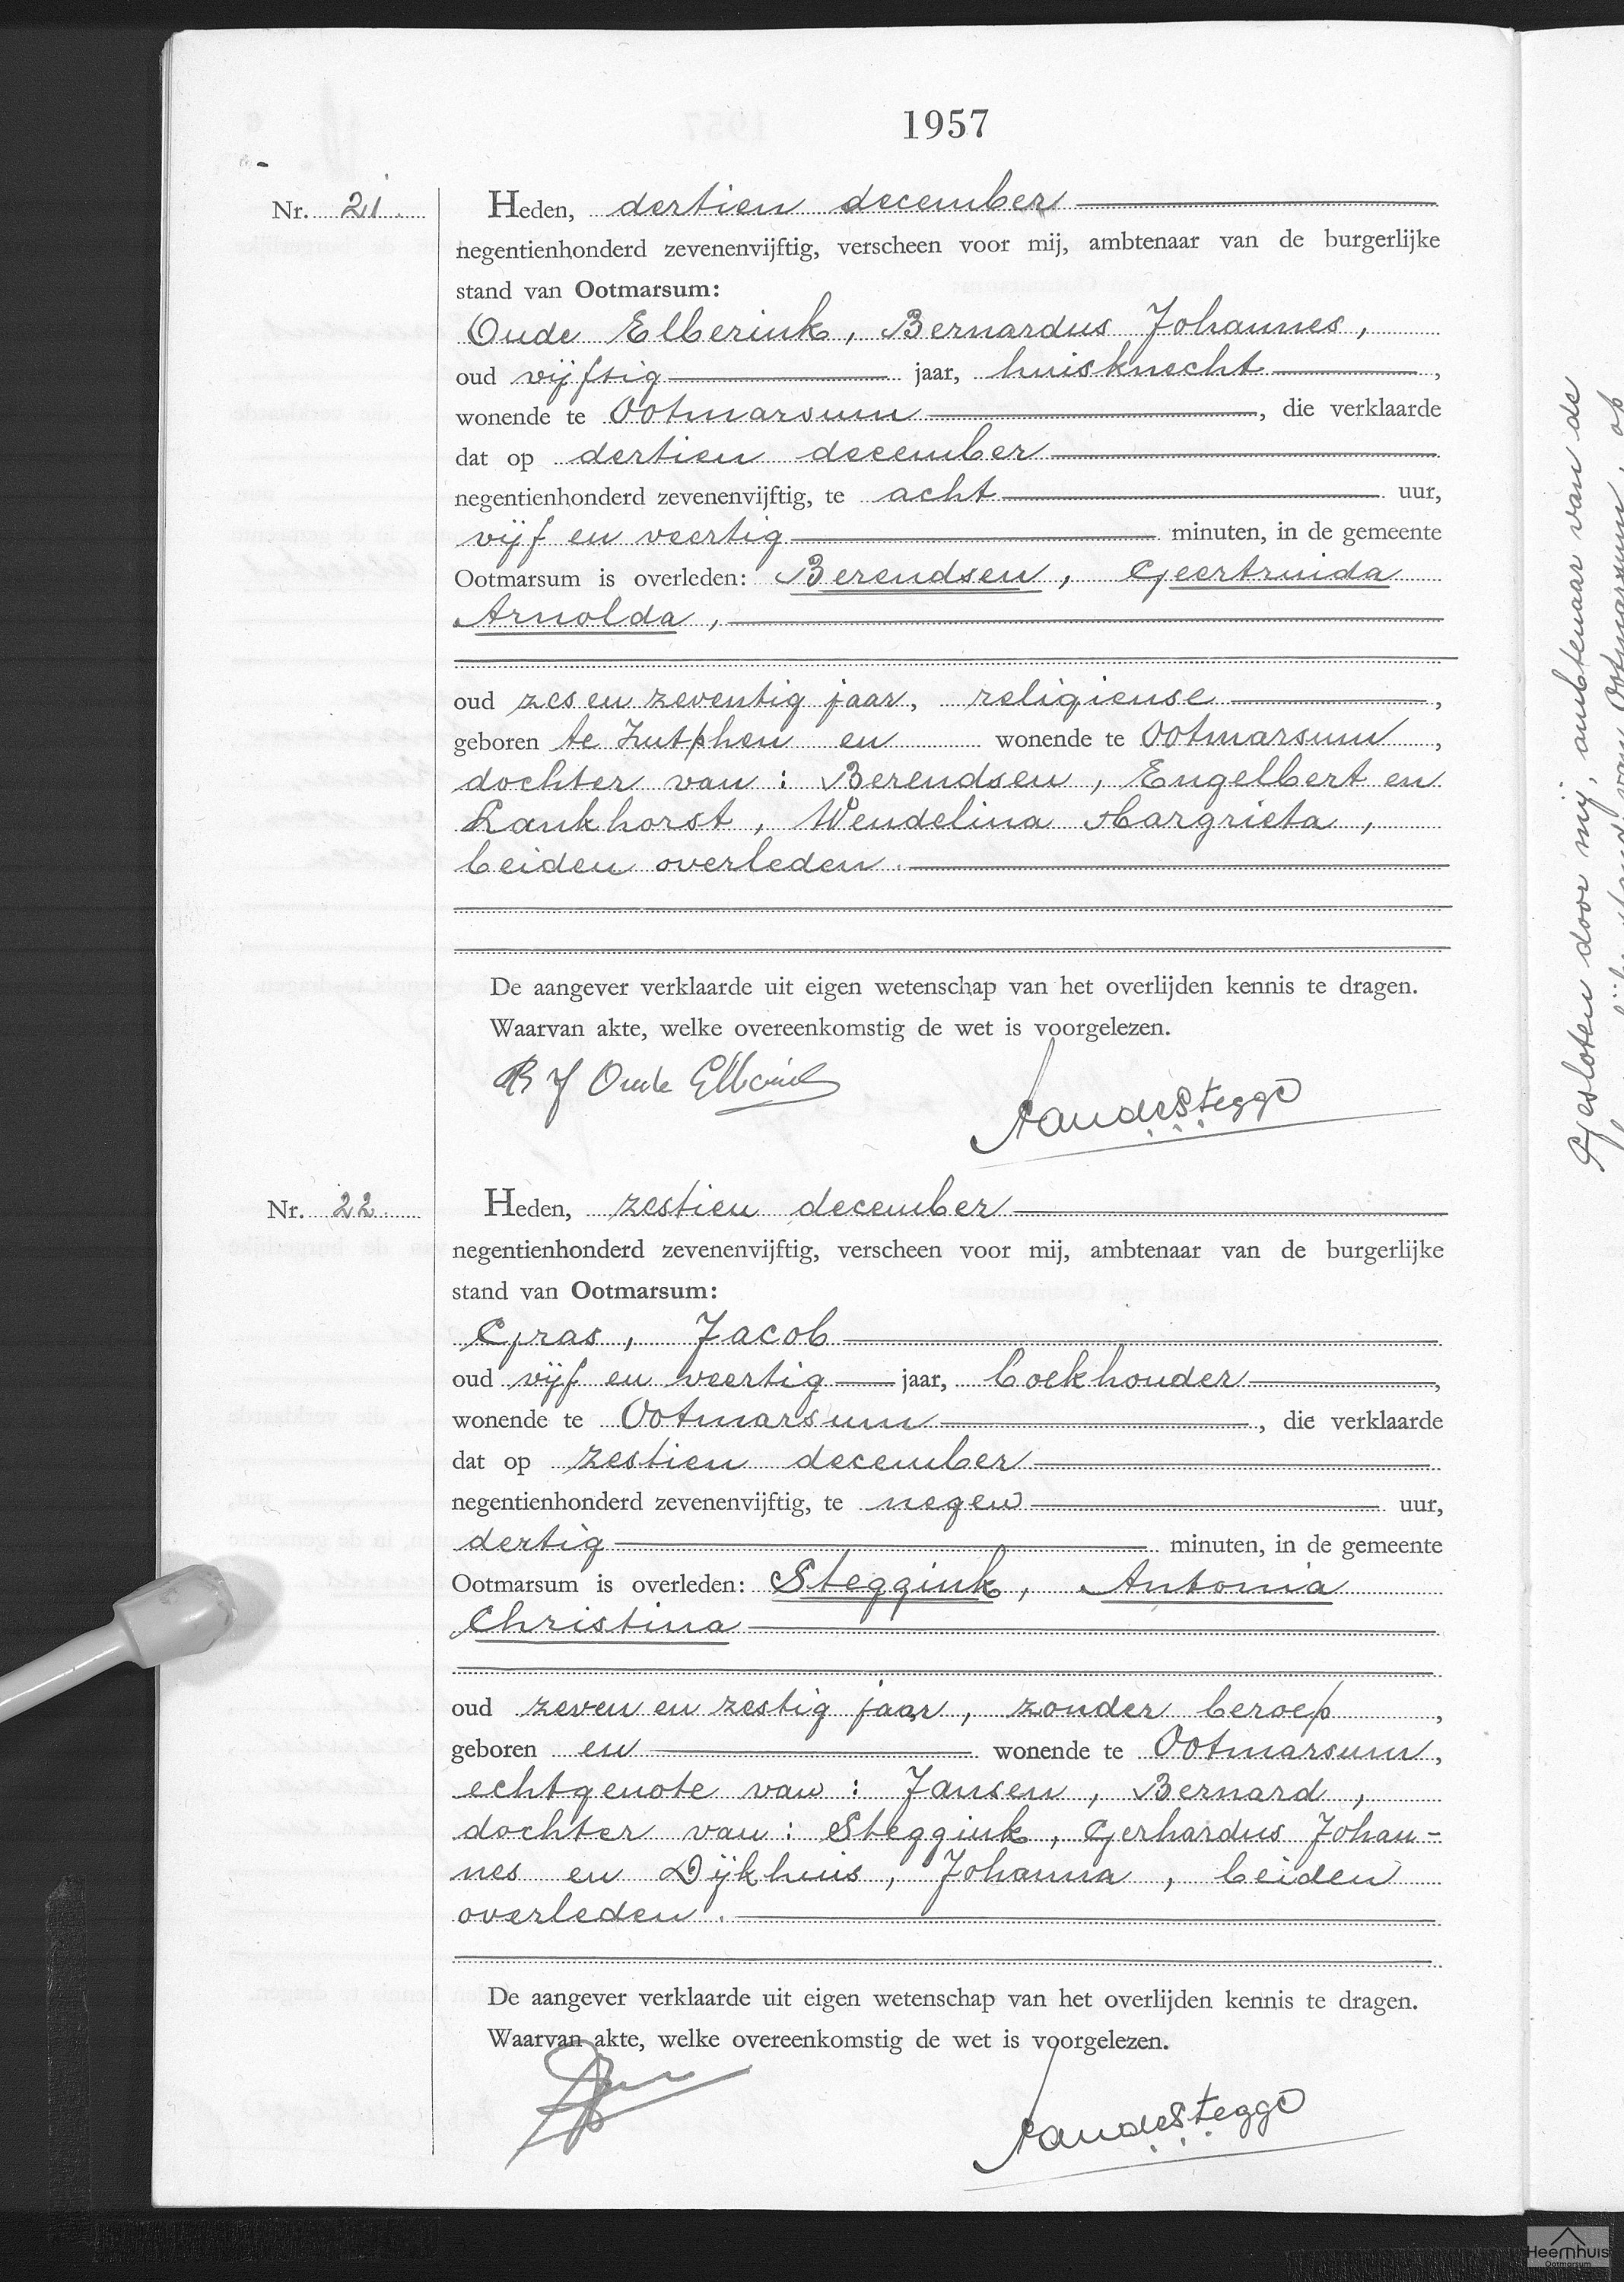 1957
Nr. 21.
Heden, dertien december
negentienhonderd zevenenvijftig, verscheen voor mij, ambtenaar van de burgerlijke
stand van Ootmarsum:
Oude Elberink, Bernardus Johannes,
oud vijftig jaar, huisknecht,
wonende te Ootmarsum, die verklaarde
dat op dertien december
negentienhonderd zevenenvijftig, te acht uur,
vijf en veertig minuten, in de gemeente
Ootmarsum is overleden: Berendsen, Geertruida
Arnolda,
oud zes en zeventig jaar, religieuse,
geboren te Zutphen en wonende te Ootmarsum,
dochter van: Berendsen, Engelbert en
Lankhorst, Wendelina Margrieta,
beiden overleden.
De aangever verklaarde uit eigen wetenschap van het overlijden kennis te dragen.
Waarvan akte, welke overeenkomstig de wet is voorgelezen.
B J Oude Elberink
Nr. 22.
Heden, zestien december
negentienhonderd zevenenvijftig, verscheen voor mij, ambtenaar van de burgerlijke
stand van Ootmarsum:
Gras, Jacob
oud vijf en veertig jaar, boekhouder,
wonende te Ootmarsum, die verklaarde
dat op zestien december
negentienhonderd zevenenvijftig, te negen uur,
dertig minuten, in de gemeente
Ootmarsum is overleden: Steggink, Antonia
Christina
oud zeven en zestig jaar, zonder beroep,
geboren en wonende te Ootmarsum,
echtgenote van: Jansen, Bernard,
dochter van: Steggink, Gerhardus Johan-
nes en Dijkhuis, Johanna, beiden
overleden.
De aangever verklaarde uit eigen wetenschap van het overlijden kennis te dragen.
Waarvan akte, welke overeenkomstig de wet is voorgelezen.
Gesloten door mij, ambtenaar van de
Heemhuis
Ootmarsum